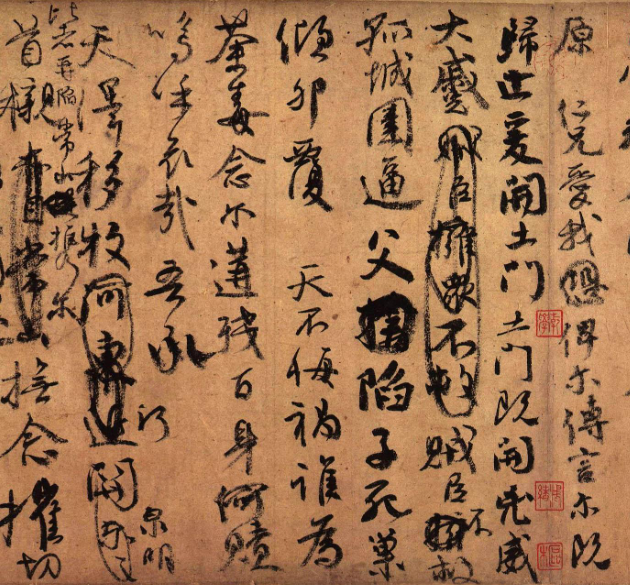 原 仁兄愛我 俾爾傳言爾既
歸止爰開土門土門既開兇威
大蹙賊臣擁眾不救賊臣不救
孤城圍逼父陷子死巢
傾卵覆 天不悔禍誰為
荼毒念爾遘殘百身何贖
嗚呼哀哉 吾承
天澤移牧河關
泉明
比者再陷常山攜爾
首櫬亦自常山撫念摧切